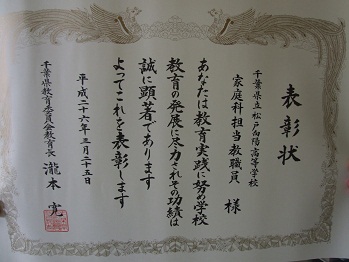 表彰状
千葉県立松戸向陽高等学校
家庭科担当教職員 様
あなたは教育実践に努め学校
教育の発展に尽力されその功績は
誠に顕著であります
よってこれを表彰します
平成二十六年三月二十五日
千葉県教育委員会教育長 瀧本 寛